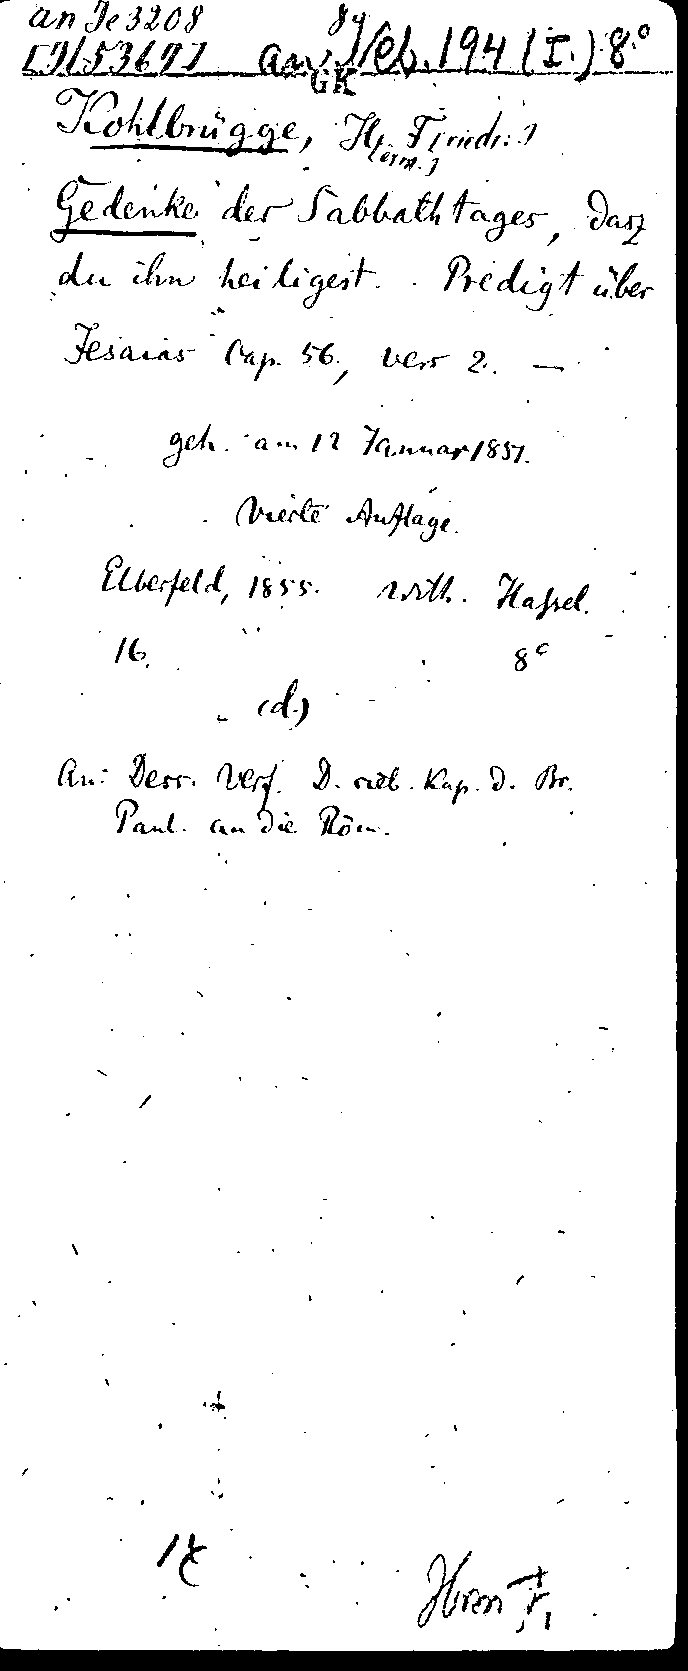 an Je 3208
84
[J/53697] an Neb. 194 (I.) 8.°
GK
Kohlbrügge, H[erm.] F[riedr.]
Gedenke der Sabbathtages, dasz
du ihn heiligest. Predigt über
Jesaias Cap. 56, vers 2. —
geh. am 12 Januar 1851.
Vierte Auflage.
Elberfeld, 1855. With. Hassel.
16. 8°
(d.)
An: Dess. Verf. D. sieb. Kap. d. Br.
Paul. an die Röm.